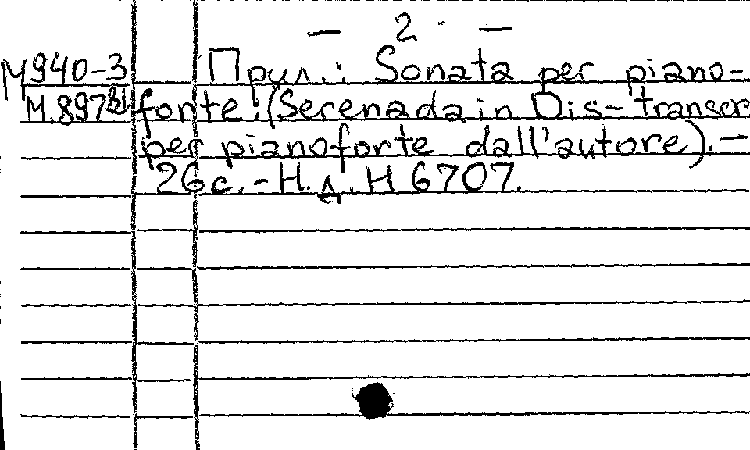 — 2 —
М940-3 Прил.: Sonata per piano-
М.897 forte: (Serenada in Dis- transcr
per pianoforte dall'autore). —
26с. - Н.д. Н 6707.